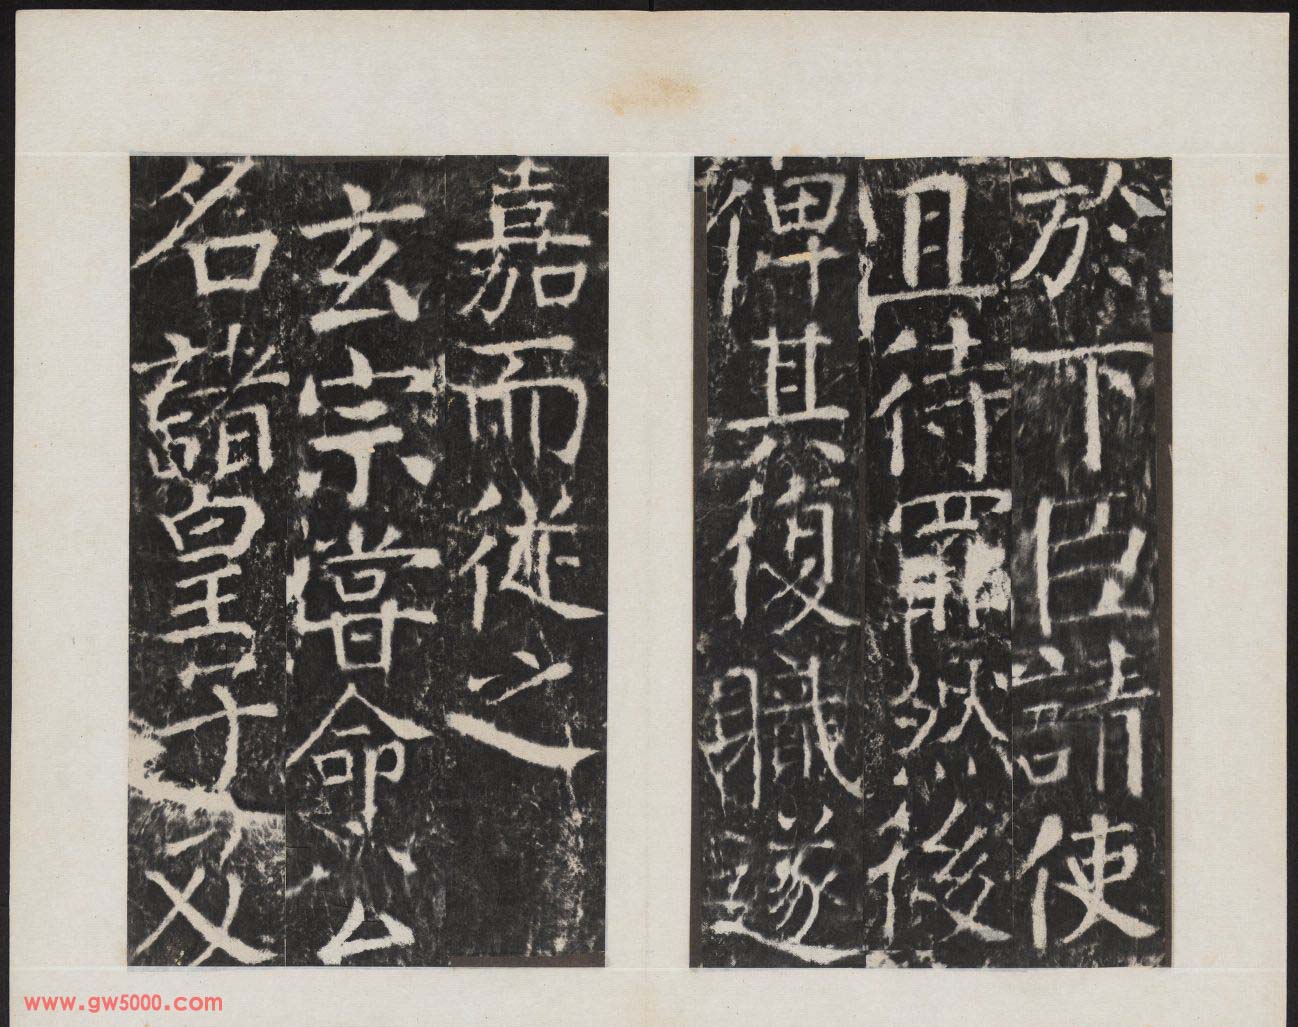 於下臣請使
且待罪然後
俾其復職遂
嘉而從之
玄宗嘗命公
名諸皇子父
www.gw5000.com